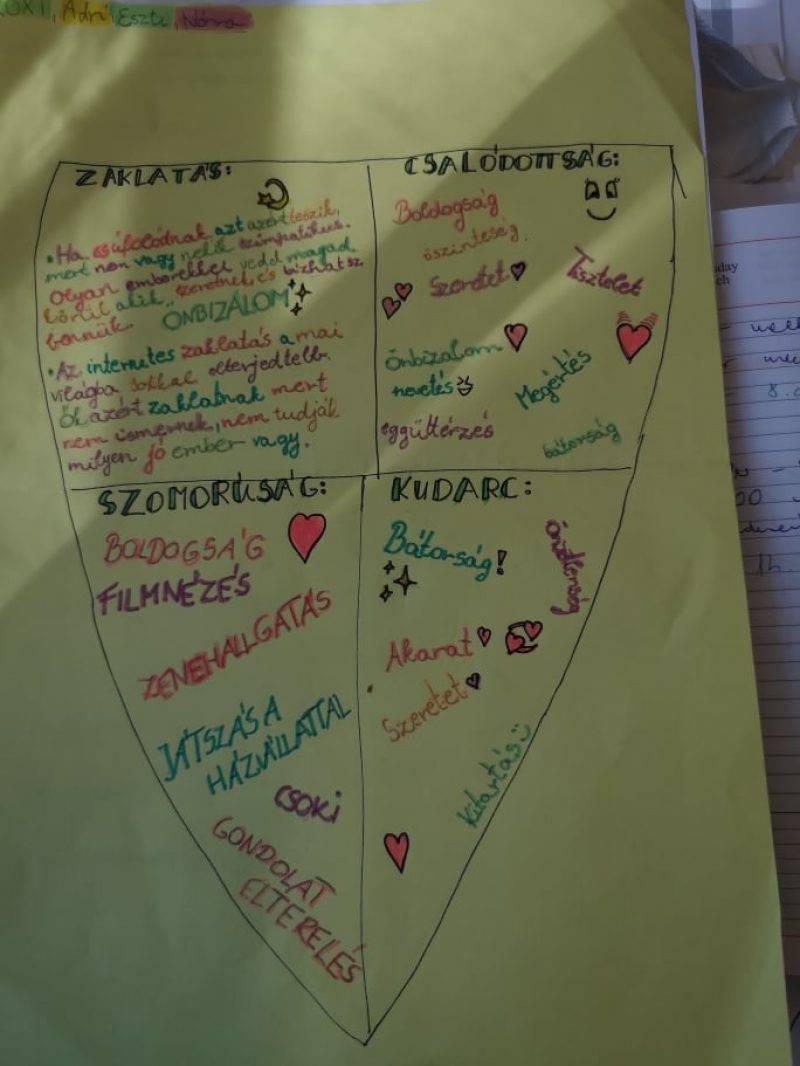 ROXI, Adri, Eszti, Nóra
ZAKLATÁS:
• Ha csúfolódnak azt azért teszik,
mert nem vagy nekik szimpatikus.
Olyan emberekkel vedd magad
körül akik szeretnek és bízhatsz
bennük. ÖNBIZALOM
• Az internetes zaklatás a mai
világba sokkal elterjedtebb.
Ők azért zaklatnak mert
nem ismernek, nem tudják
milyen jó ember vagy.
CSALÓDOTTSÁG:
Boldogság
őszinteség.
Szeretet
Tisztelet
Önbizalom
nevetés
Megértés
együttérzés
bátorság
SZOMORÚSÁG:
BOLDOGSÁG
FILMNÉZÉS
ZENEHALLGATÁS
JÁTSZÁS A
HÁZIÁLLATTAL
CSOKI
GONDOLAT
ELTERELÉS
KUDARC:
Bátorság!
Akarat
Szeretet
Kitartás